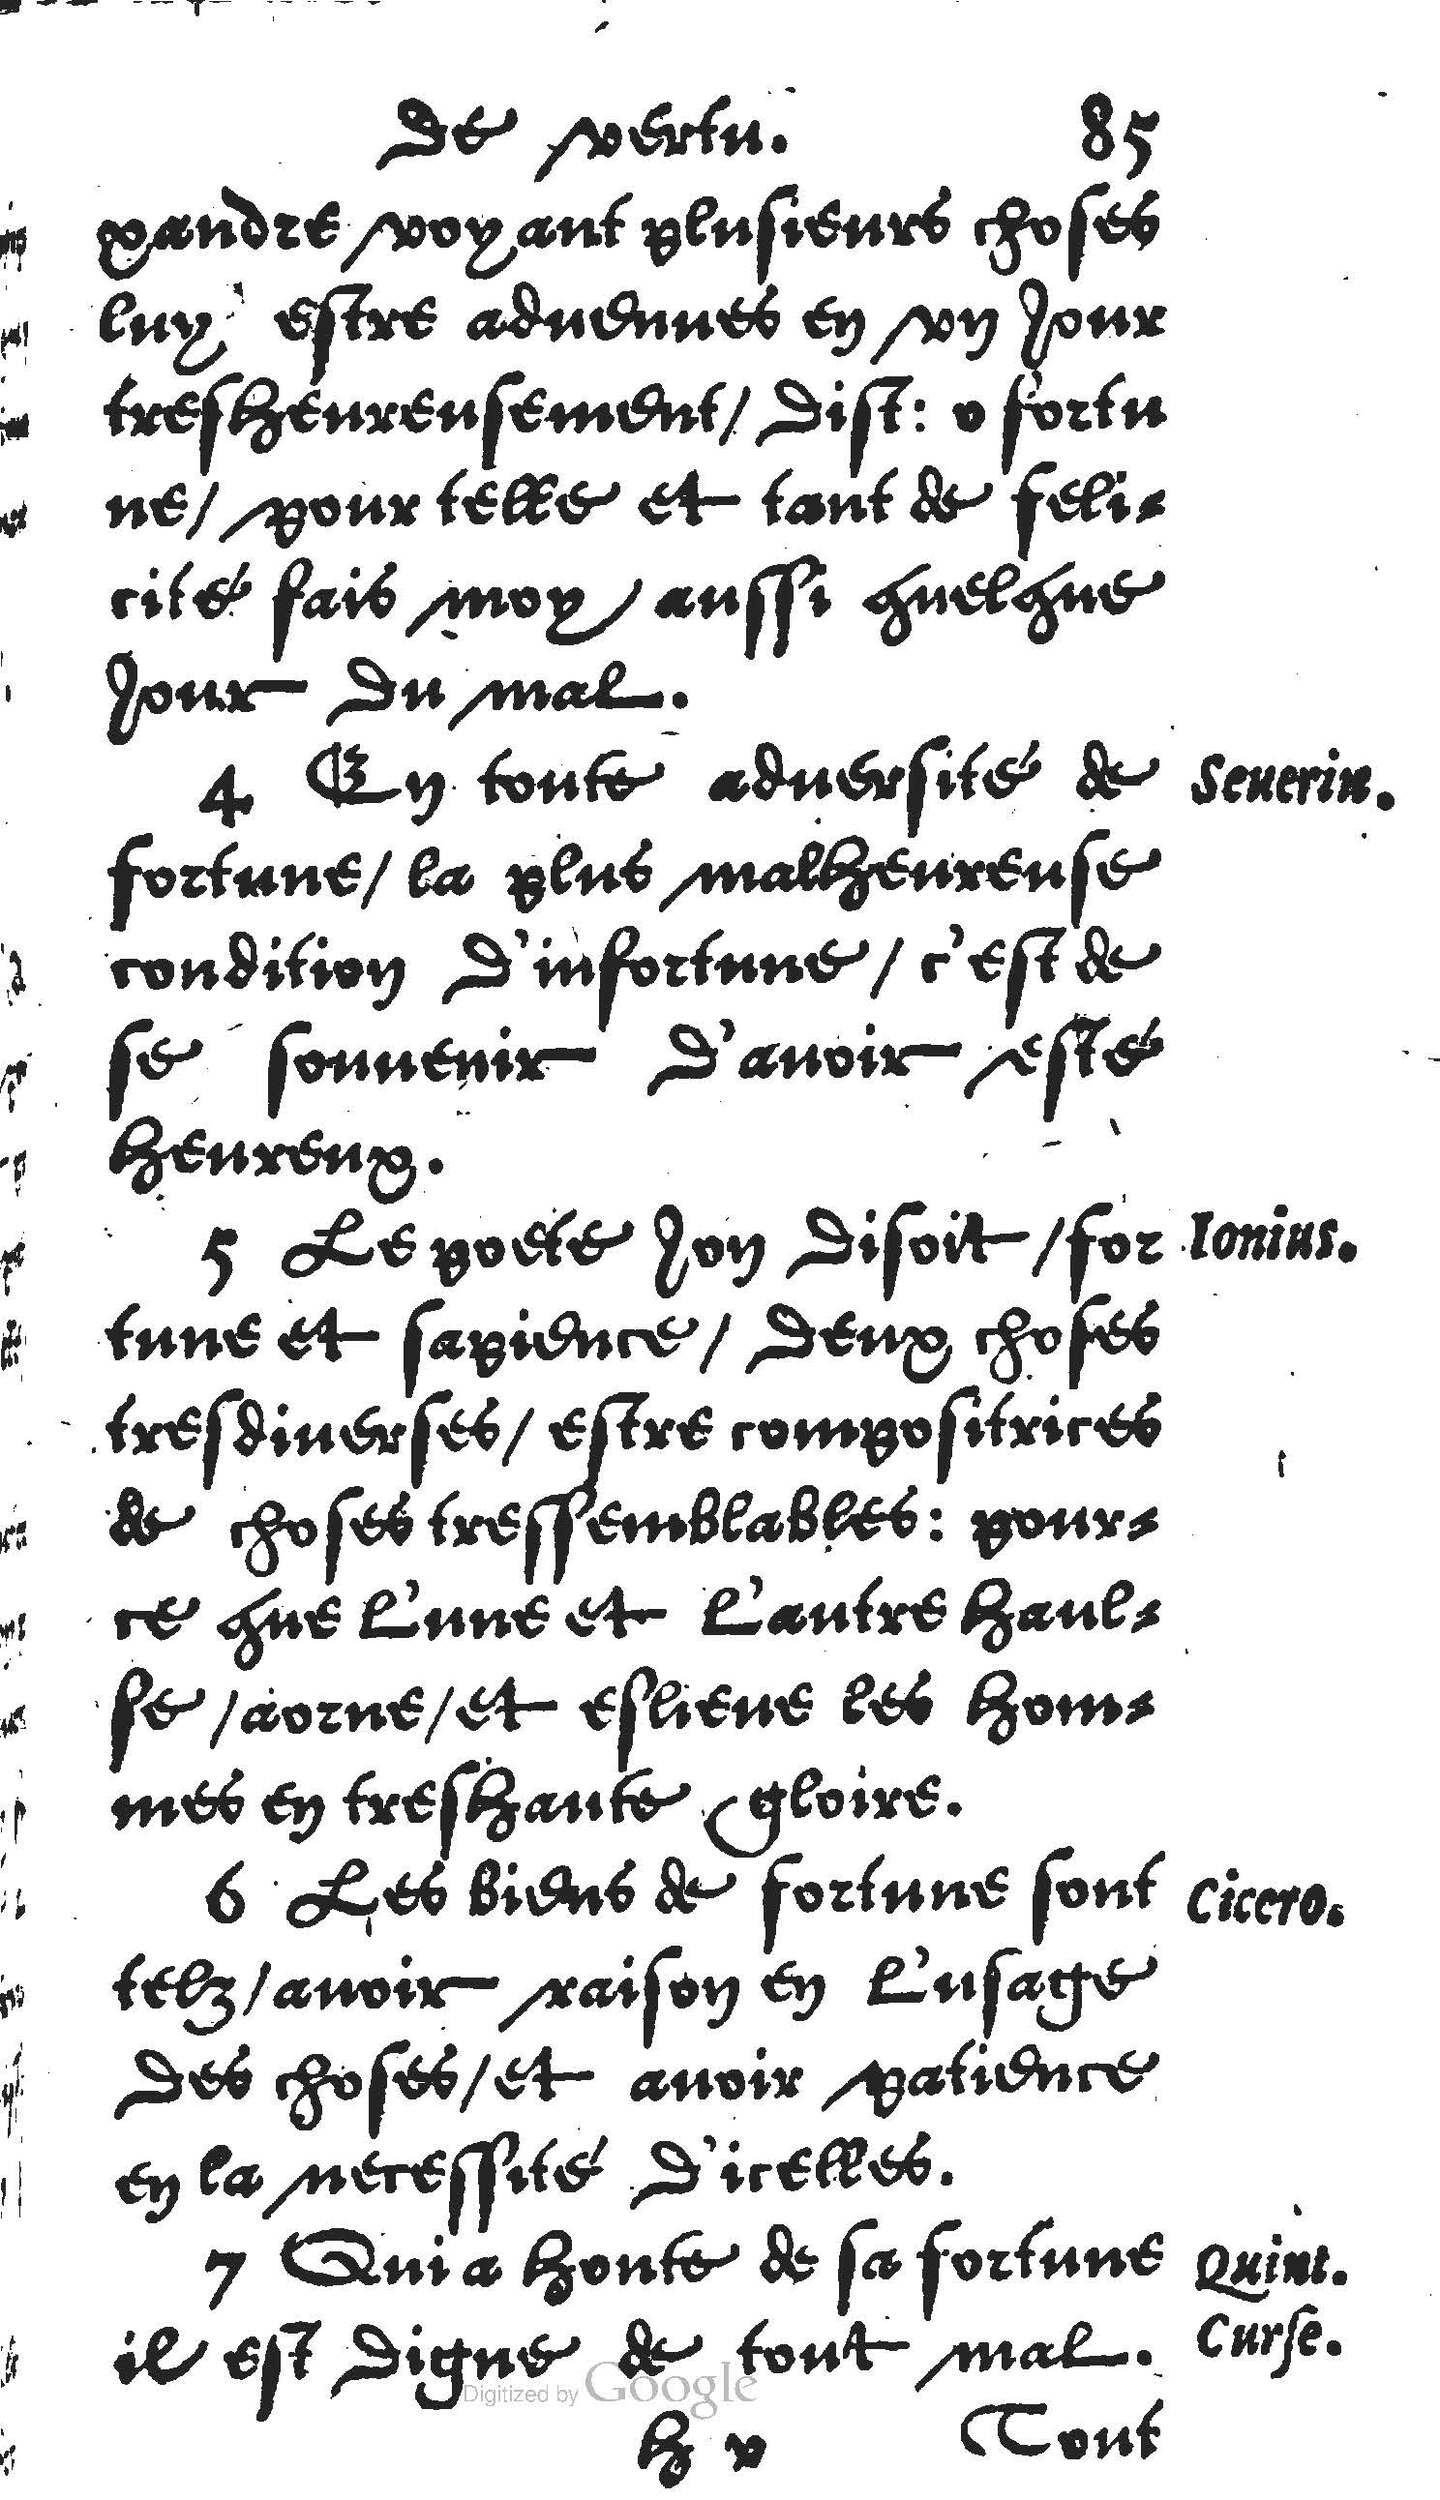 De vertu. 85
xandre voyant plusieurs choses
luy estre aduenues en vn Jour
tresheureusement/ Dist: o fortu
ne/ pour telle et tant de feli-
cité fais moy aussi quelque
Jour Du mal.
4 En toute aduersité de Seuerin.
fortune/ la plus malheureuse
condition D'infortune/ c'est de
se souuenir D'auoir esté
heureux.
5 Le poete Jon Disoit/ for Ionius.
tune et sapience/ Deux choses
tresdiuerses/ estre compositrices
de choses tressemblables: pour-
ce que L'une et L'autre haul-
se/ aorne/ et eslieue les hom-
mes en treshaute gloire.
6 Les biens de fortune sont Cicero.
telz/ auoir raison en L'usage
Des choses/ et auoir patience
en la necessité D'icelles.
7 Qui a honte de sa fortune Quint.
il est Digne de tout mal. Curse.
Digitized by Google
h v Tout